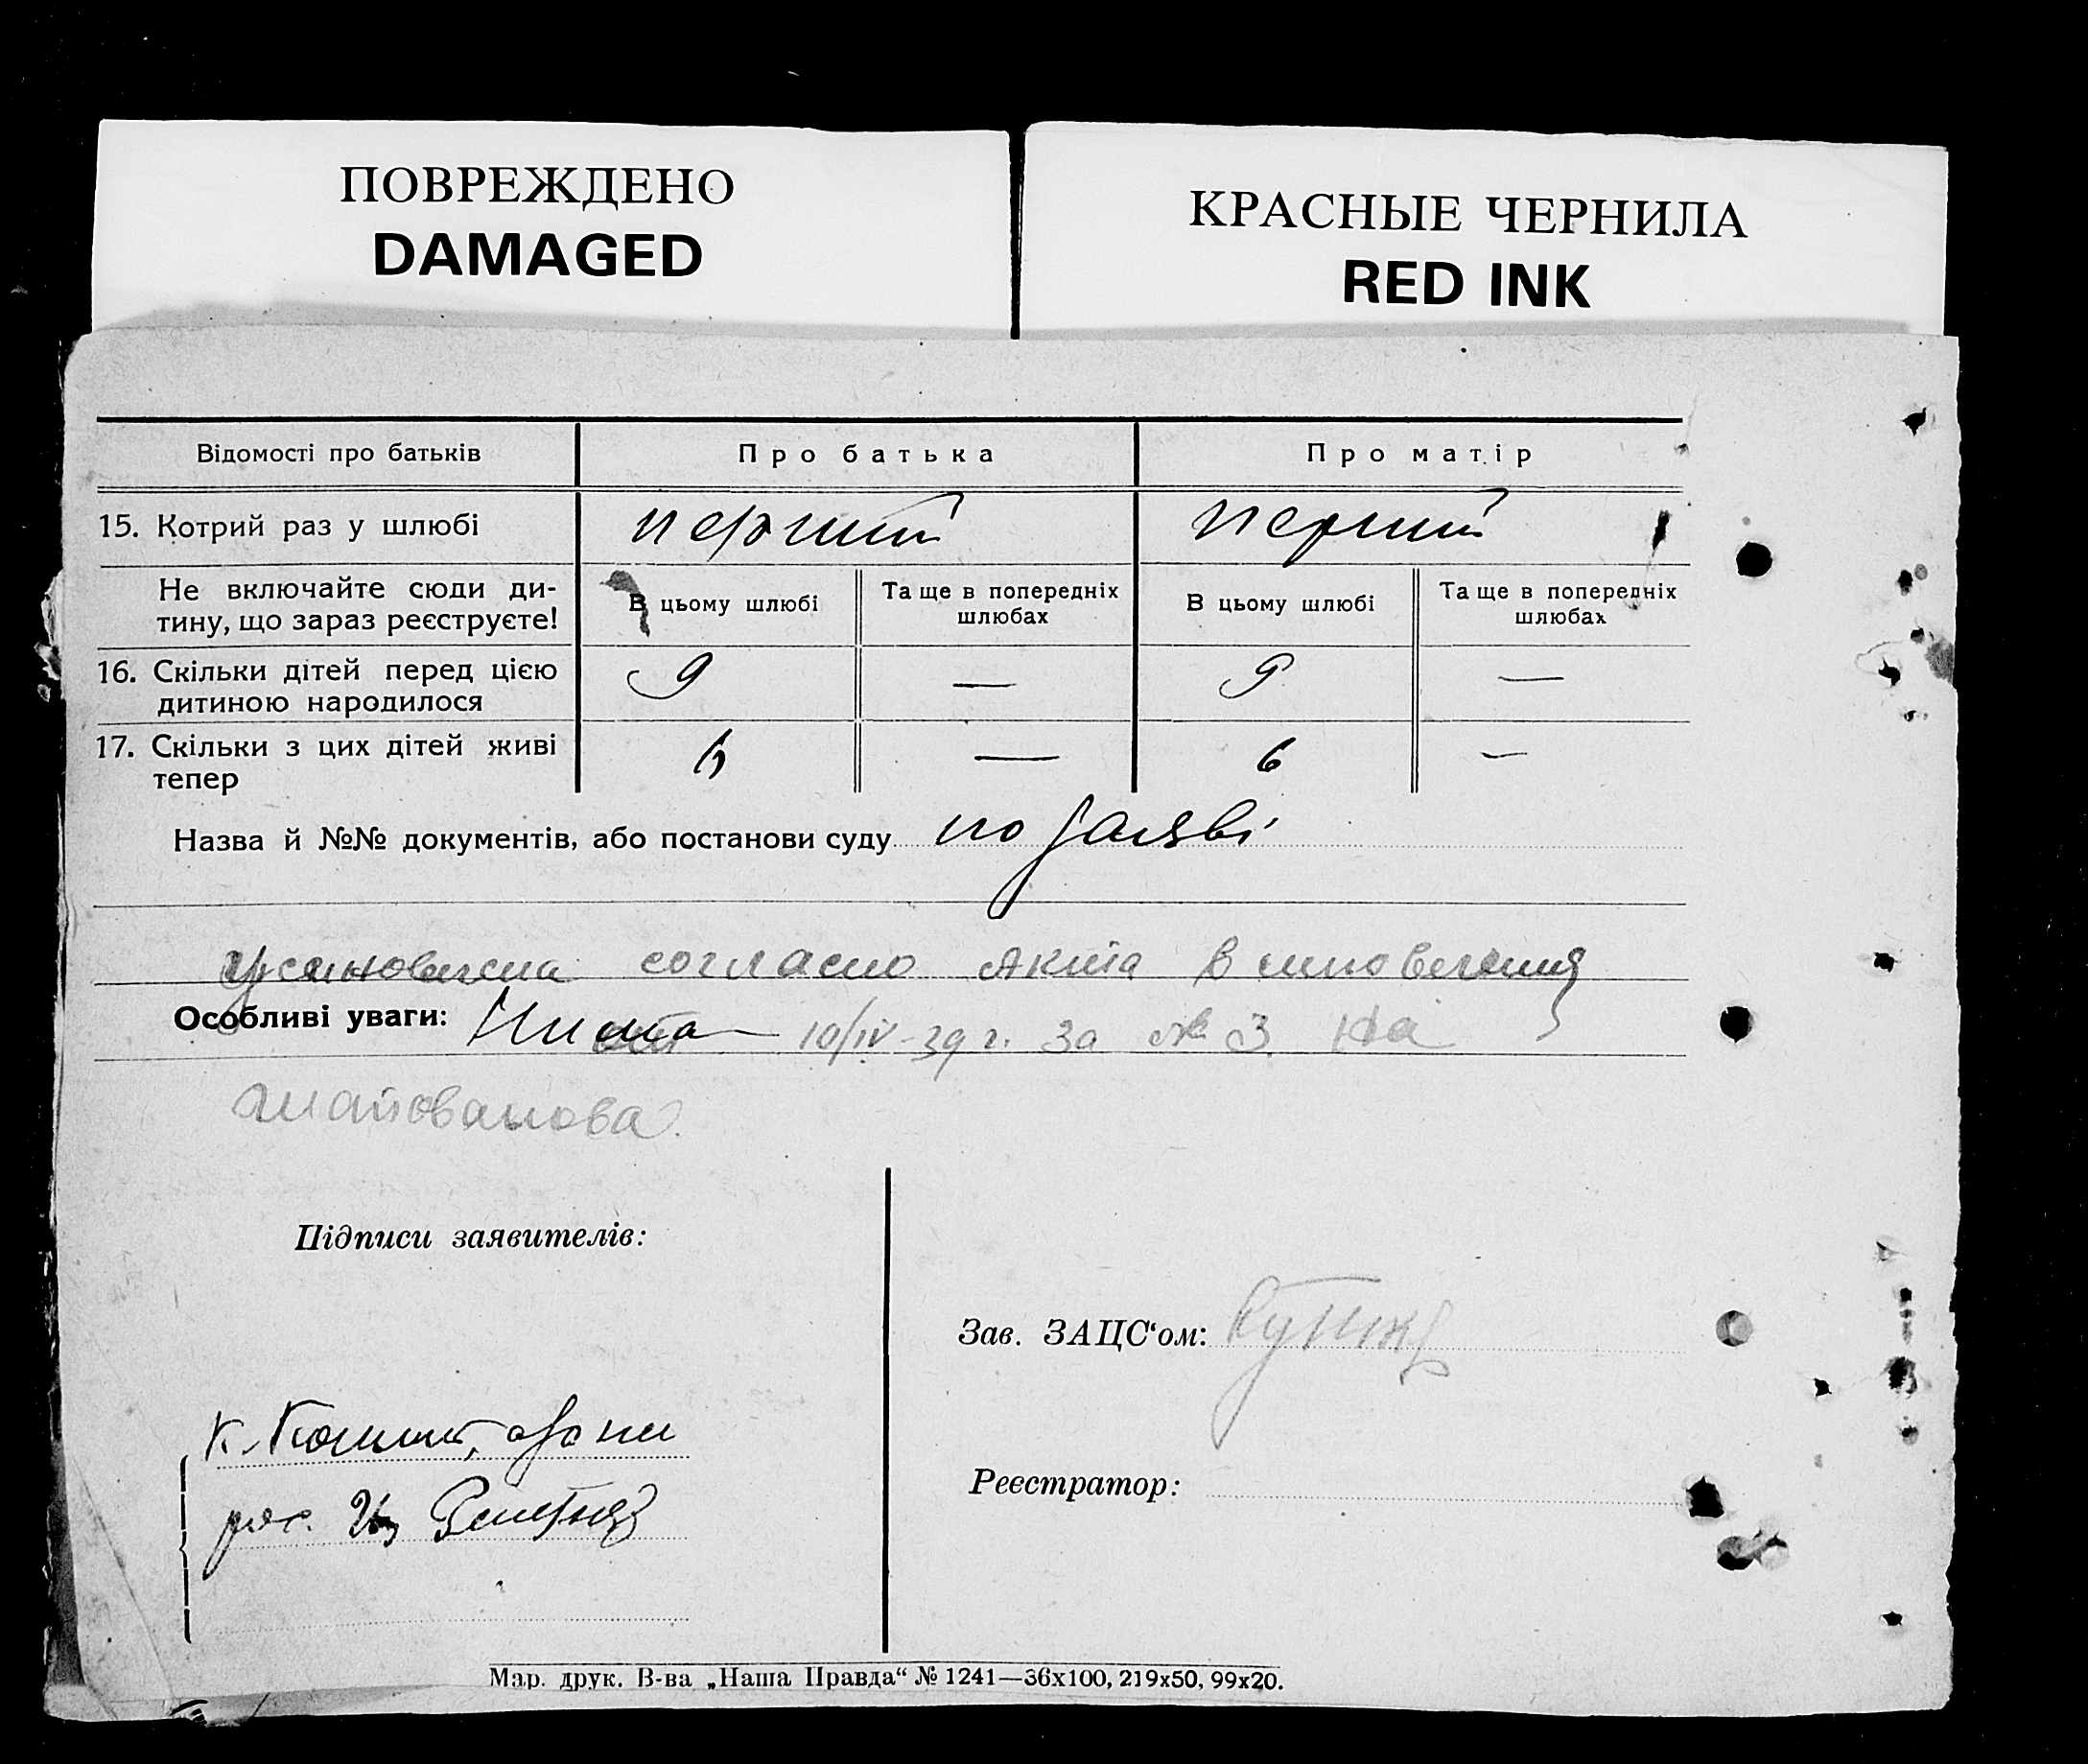 ПОВРЕЖДЕНО
DAMAGED
КРАСНЫЕ ЧЕРНИЛА
RED INK
Відомості про батьків Про батька Про матір
15. Котрий раз у шлюбі перший перший
Не включайте сюди ди-
тину, що зараз реєструєте!
В цьому шлюбі Та ще в попередніх шлюбах В цьому шлюбі Та ще в попередніх шлюбах
16. Скільки дітей перед цією
дитиною народилося 9 — 9 —
17. Скільки з цих дітей живі
тепер 6 — 6 —
Назва й №№ документів, або постанови суду по заяві
согласно Акта
Особливі уваги: Нима 10/IV-39 г. за № 3 на
Підписи заявителів:
Зав. ЗАЦС‘ом:
Реєстратор:
Мар. друк. В-ва „Наша Правда“ № 1241—36х100, 219х50, 99х20.